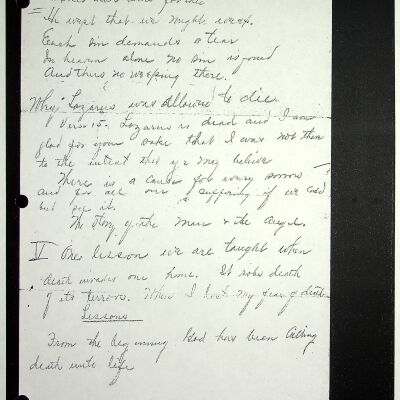 He wept that we might weep.
Each sin demands a tear
In heaven alone no sin is found
And there's no weeping there.
Why Lazarus was allowed to die.
Vers 15. Lazarus is dead and I am
glad for your sake that I was not there
to the intent that ye may believe
There is a cause for every sorrow
and for all our suffering if we could
but see it.
The story of the man & the angel.
V One lesson we are taught when
death invades our home. It robs death
of its terrors. When I lost my fear of death
Lessons
From the beginning God has been calling
death unto life